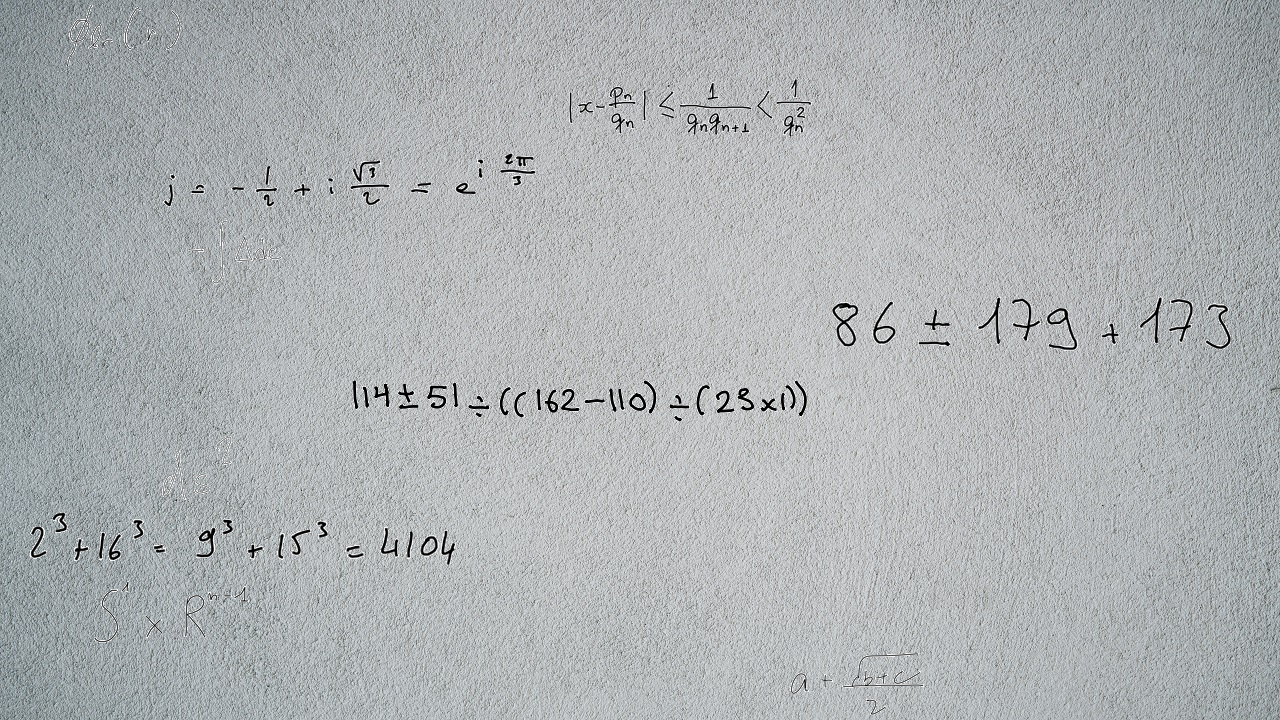 |x - pₙ/qₙ| ≤ 1/(qₙqₙ₊₁) < 1/qₙ²
j = -1/2 + i √3/2 = e^(i 2π/3)
86 ± 179 + 173
114 ± 51 ÷ ((162 - 110) ÷ (23 × 1))
2³ + 16³ = 9³ + 15³ = 4104
S¹ × Rⁿ⁻¹
a + √(b+c)/2